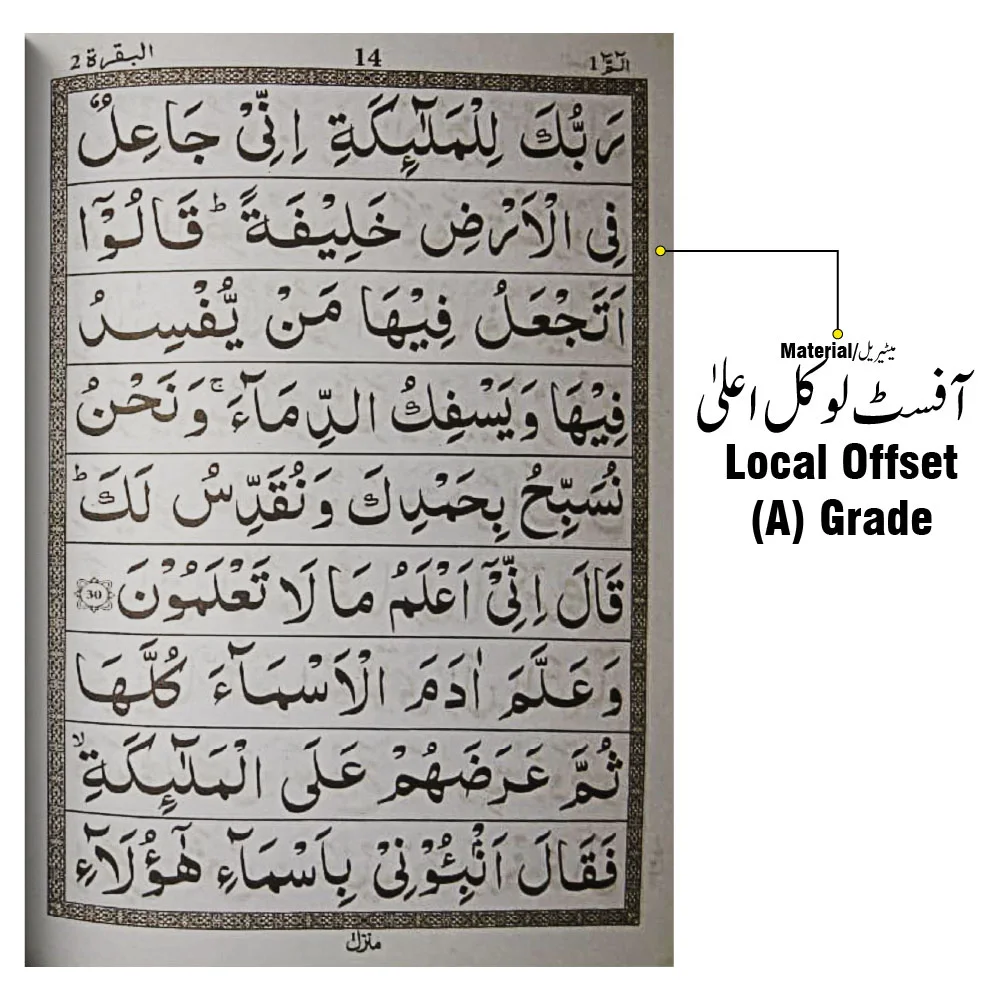 البقرة 2
14
الٓمّٓ 1
رَبُّكَ لِلْمَلٰٓئِكَةِ اِنِّیْ جَاعِلٌ
فِی الْاَرْضِ خَلِیْفَةً ؕ قَالُوْۤا
اَتَجْعَلُ فِیْهَا مَنْ یُّفْسِدُ
فِیْهَا وَیَسْفِكُ الدِّمَآءَ ۚ وَنَحْنُ
نُسَبِّحُ بِحَمْدِكَ وَنُقَدِّسُ لَكَ ؕ
قَالَ اِنِّیْۤ اَعْلَمُ مَا لَا تَعْلَمُوْنَ 30
وَعَلَّمَ اٰدَمَ الْاَسْمَآءَ كُلَّهَا
ثُمَّ عَرَضَهُمْ عَلَی الْمَلٰٓئِكَةِ ۙ
فَقَالَ اَنْۢبِـُٔوْنِیْ بِاَسْمَآءِ هٰۤؤُلَآءِ
Material/میٹیریل
آفسٹ لوکل اعلیٰ
Local Offset
(A) Grade